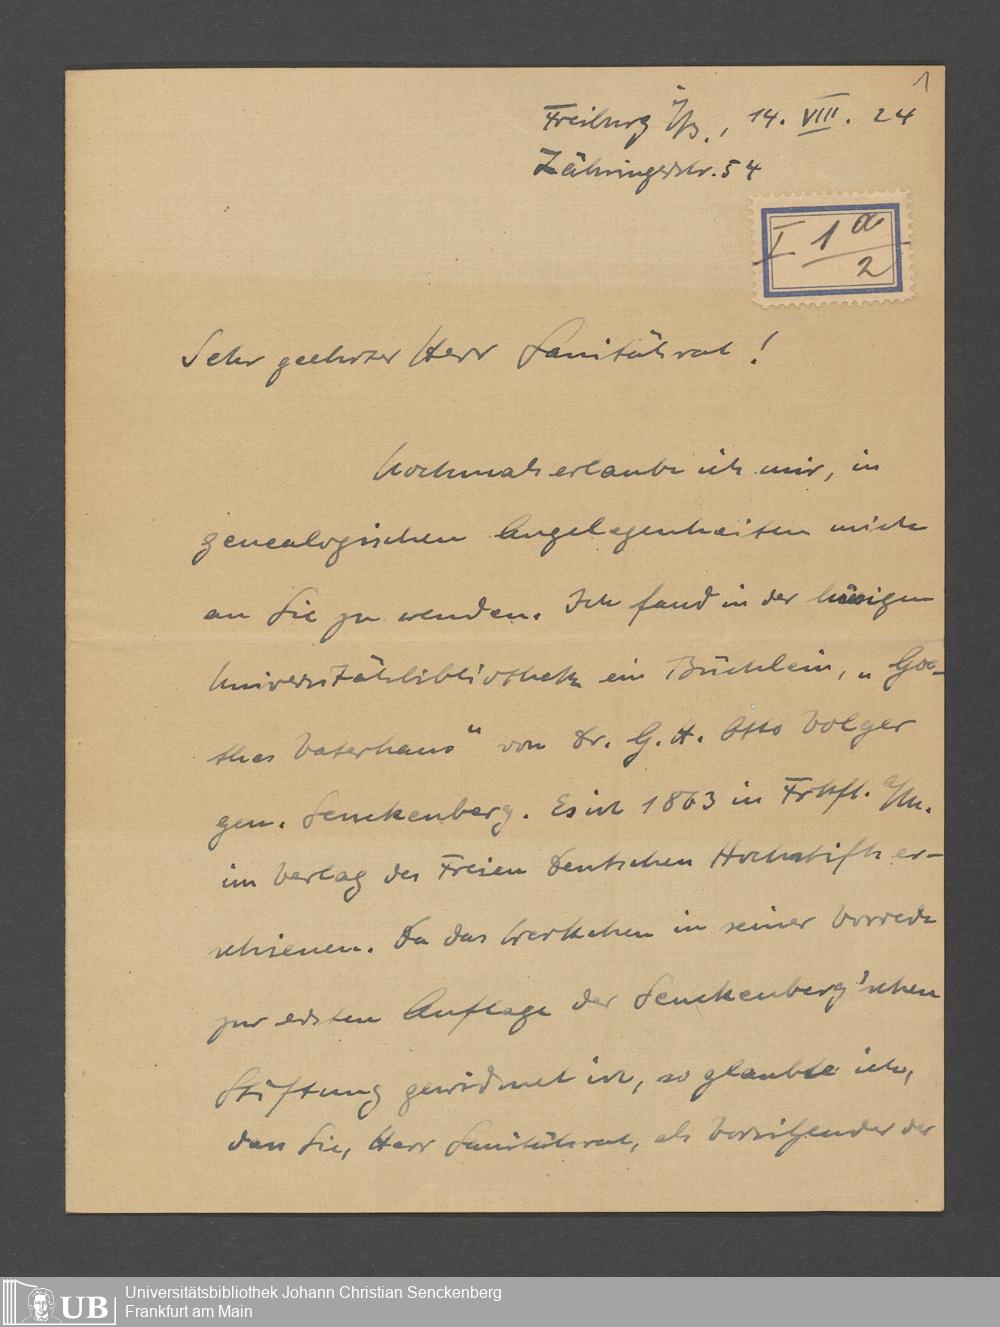 1
Freiburg i/B., 14. VIII. 24
Zähringerstr. 54
I 1 a
2
Sehr geehrter Herr Sanitätsrat!
Nochmals erlaube ich mir, in
genealogischen Angelegenheiten mich
an Sie zu wenden. Ich fand in der hiesigen
Universitätsbibliothek ein Büchlein, „Goe-
thes Vaterhaus“ von Dr. G. H. Otto Volger
gen. Senckenberg. Es ist 1863 in Frkft. a/M.
im Verlag des Freien Deutschen Hochstifts er-
schienen. Da das Werkchen in seiner Vorrede
zur ersten Auflage der Senckenberg'schen
Stiftung gewidmet ist, so glaubte ich,
dass Sie, Herr Sanitätsrat, als Vorsitzender der
UB
Universitätsbibliothek Johann Christian Senckenberg
Frankfurt am Main